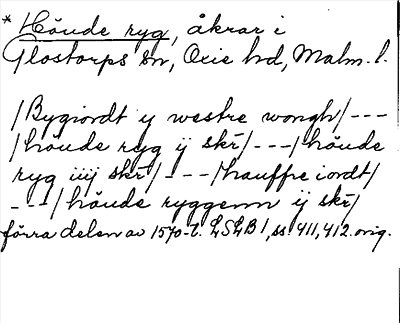 * Höude ryg, åkrar i
Glostorps sn, Oxie hd, Malm. l.
/Bygiordt y westre wongh/---
/höude ryg ij skr/---/höude
ryg iiij skr/---/hauffre iordt/
---/höude ryggenn ij skr/
förra delen av 1570-t. LSLB 1, ss. 411, 412. orig.